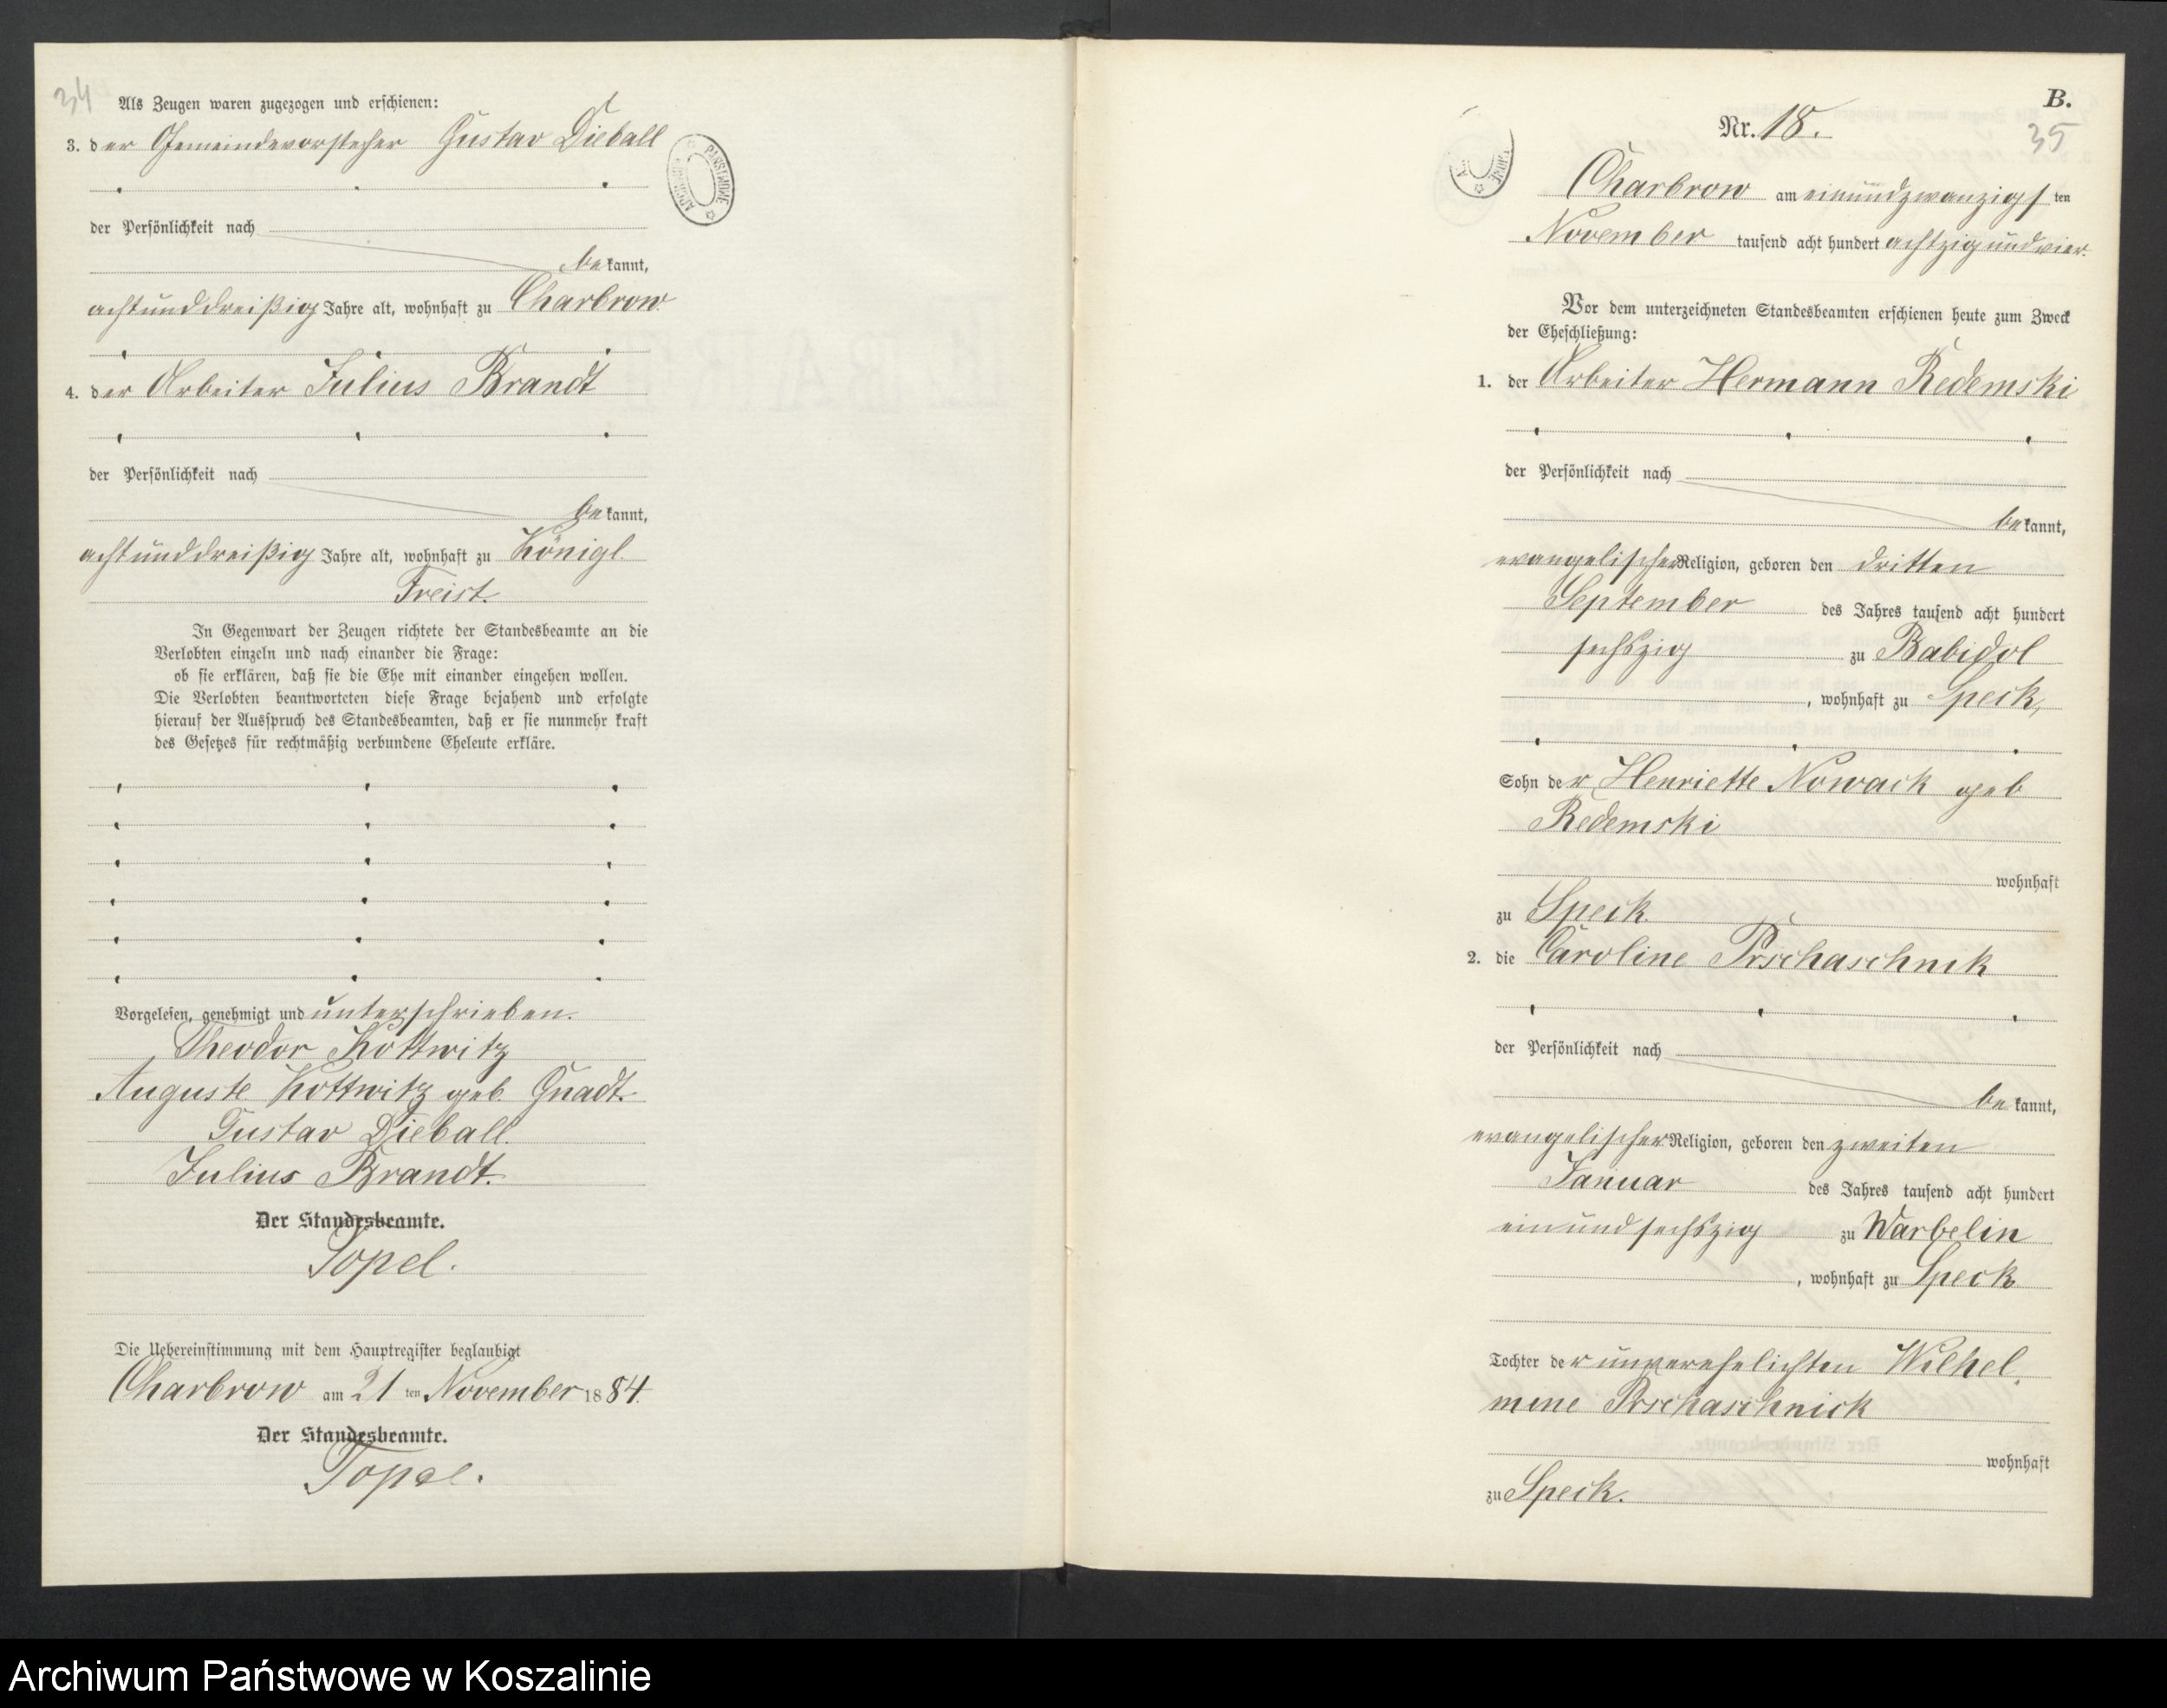 34
Als Zeugen waren zugezogen und erschienen:
3. der Gemeindevorsteher Gustav Dieball
der Persönlichkeit nach
bekannt,
achtunddreißig Jahre alt, wohnhaft zu Charbrow
4. der Arbeiter Julius Brandt
der Persönlichkeit nach
bekannt,
achtunddreißig Jahre alt, wohnhaft zu Königl.
Freist.
In Gegenwart der Zeugen richtete der Standesbeamte an die
Verlobten einzeln und nach einander die Frage:
ob sie erklären, daß sie die Ehe mit einander eingehen wollen.
Die Verlobten beantworteten diese Frage bejahend und erfolgte
hierauf der Ausspruch des Standesbeamten, daß er sie nunmehr kraft
des Gesetzes für rechtmäßig verbundene Eheleute erkläre.
Vorgelesen, genehmigt und unterschrieben.
Theodor Kottwitz
Auguste Kottwitz geb. Gnadt.
Gustav Dieball.
Julius Brandt.
Der Standesbeamte.
Topel.
Die Uebereinstimmung mit dem Hauptregister beglaubigt
Charbrow am 21 ten November 1884.
Der Standesbeamte.
Topel.
ARCHIWUM PAŃSTWOWE
B.
Nr. 18.
35
Charbrow am einundzwanzigsten
November tausend acht hundert achtzig und vier.
Vor dem unterzeichneten Standesbeamten erschienen heute zum Zweck
der Eheschließung:
1. der Arbeiter Hermann Redemski
der Persönlichkeit nach
bekannt,
evangelischer Religion, geboren den dritten
September des Jahres tausend acht hundert
sechszig zu Babidol
, wohnhaft zu Speck,
Sohn der Henriette Nowack geb
Redemski
wohnhaft
zu Speck.
2. die Caroline Prschaschnik
der Persönlichkeit nach
bekannt,
evangelischer Religion, geboren den zweiten
Januar des Jahres tausend acht hundert
einundsechszig zu Warbelin
, wohnhaft zu Speck
Tochter der unverehelichten Wilhel
mine Prschaschnick
wohnhaft
zu Speck.
Archiwum Państwowe w Koszalinie